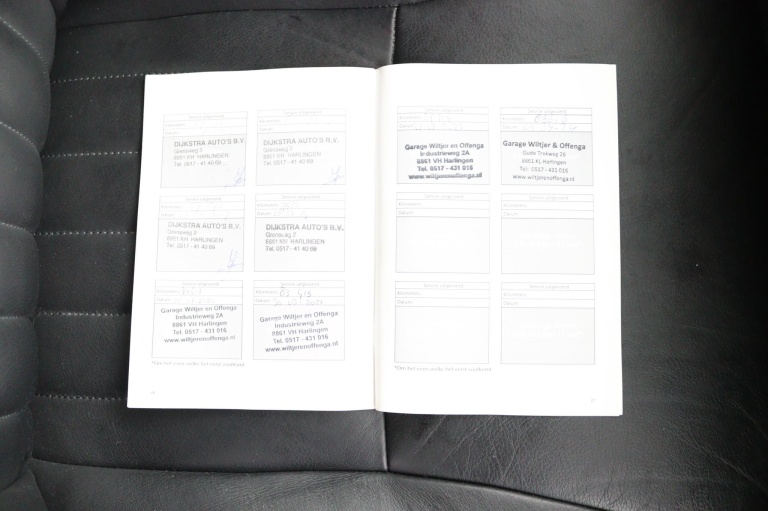 Service uitgevoerd
Kilometers:
Datum:
DIJKSTRA AUTO'S B.V.
Grensweg 2
8861 KH HARLINGEN
Tel. 0517 - 41 40 69
Service uitgevoerd
Kilometers:
Datum:
DIJKSTRA AUTO'S B.V.
Grensweg 2
8861 KH HARLINGEN
Tel. 0517 - 41 40 69
Service uitgevoerd
Kilometers:
Datum:
DIJKSTRA AUTO'S B.V.
Grensweg 2
8861 KH HARLINGEN
Tel. 0517 - 41 40 69
Service uitgevoerd
Kilometers:
Datum:
DIJKSTRA AUTO'S B.V.
Grensweg 2
8861 KH HARLINGEN
Tel. 0517 - 41 40 69
Service uitgevoerd
Kilometers:
Datum:
Garage Wiltjer en Offenga
Industrieweg 2A
8861 VH Harlingen
Tel. 0517 - 431 016
www.wiltjerenoffenga.nl
Service uitgevoerd
Kilometers:
Datum:
Garage Wiltjer en Offenga
Industrieweg 2A
8861 VH Harlingen
Tel. 0517 - 431 016
www.wiltjerenoffenga.nl
*Om het even welke het eerst voorkomt
Service uitgevoerd
Kilometers:
Datum:
Garage Wiltjer en Offenga
Industrieweg 2A
8861 VH Harlingen
Tel. 0517 - 431 016
www.wiltjerenoffenga.nl
Service uitgevoerd
Kilometers:
Datum:
Garage Wiltjer & Offenga
Oude Trekweg 26
8861 KL Harlingen
Tel: 0517 - 431 016
www.wiltjerenoffenga.nl
Service uitgevoerd
Kilometers:
Datum:
Service uitgevoerd
Kilometers:
Datum:
Service uitgevoerd
Kilometers:
Datum:
Service uitgevoerd
Kilometers:
Datum:
*Om het even welke het eerst voorkomt